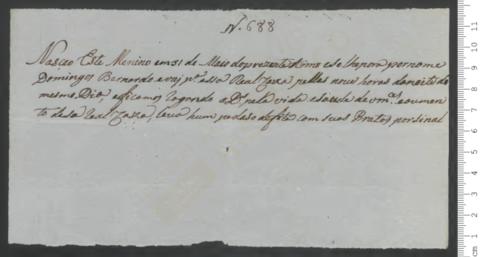 N. 688
Nasceo Este Menino em 31 de Maio do prezente Anno e se lhe pora por nome
Domingos Bernardo e vai pª essa Real Caza pellas nove horas da noite do
mesmo Dia, e ficamos rogando a Ds pela vida e saude de vmces e aumen
to desa Real Caza, leva hum pedaso de fita com suas Pratas por sinal